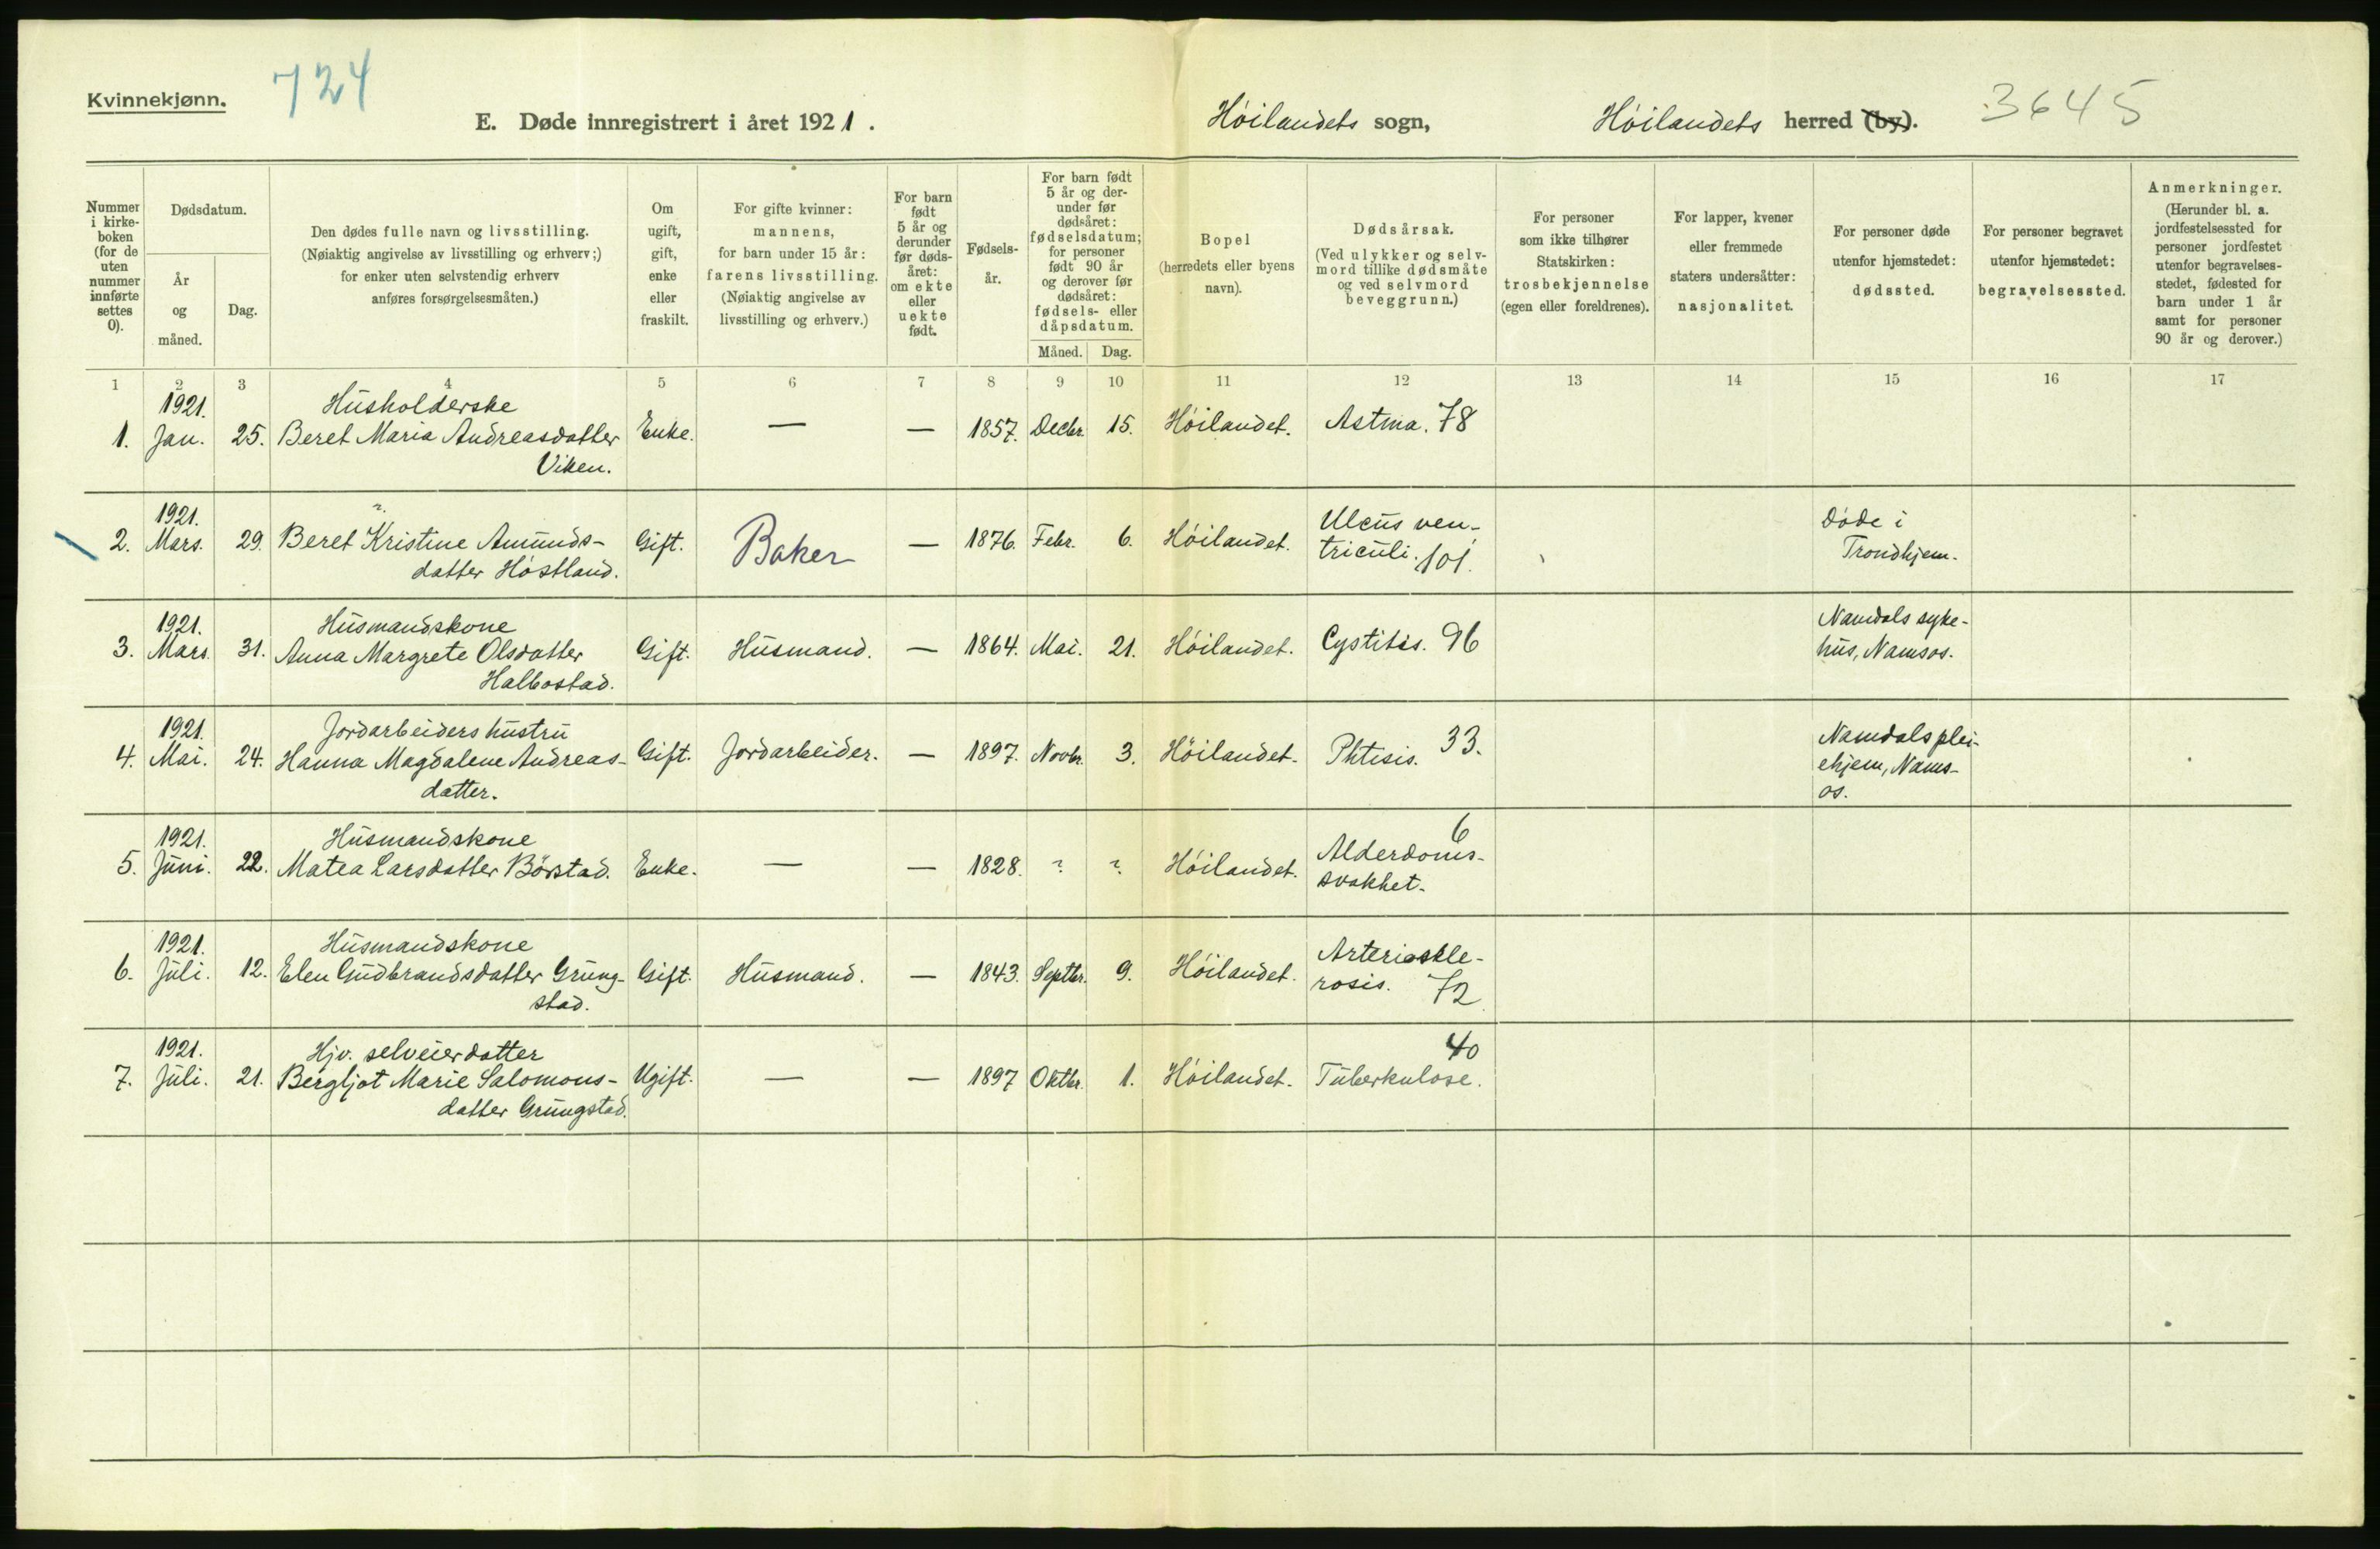 Kvinnekjønn.
724
E. Døde innregistrert i året 1921.
Høilandets sogn,
Høilandets herred (by).
3645
Nummer i kirke-boken (for de uten nummer innførte settes 0).
Dødsdatum.
År og måned.
Dag.
Den dødes fulle navn og livsstilling.
(Nøiaktig angivelse av livsstilling og erhverv;)
for enker uten selvstendig erhverv
anføres forsørgelsesmåten.)
Om ugift, gift, enke eller fraskilt.
For gifte kvinner: mannens, for barn under 15 år: farens livsstilling. (Nøiaktig angivelse av livsstilling og erhverv.)
For barn født 5 år og derunder før døds-året: om ekte eller uekte født.
Fødsels-år.
For barn født 5 år og der-under før dødsåret: fødselsdatum; for personer født 90 år og derover før dødsåret: fødsels- eller dåpsdatum.
Måned. Dag.
Bopel (herredets eller byens navn).
Dødsårsak. (Ved ulykker og selv-mord tillike dødsmåte og ved selvmord beveggrunn.)
For personer som ikke tilhører Statskirken: trosbekjennelse (egen eller foreldrenes).
For lapper, kvener eller fremmede staters undersåtter: nasjonalitet.
For personer døde utenfor hjemstedet: dødssted.
For personer begravet utenfor hjemstedet: begravelsessted.
Anmerkninger. (Herunder bl. a. jordfestelsessted for personer jordfestet utenfor begravelses-stedet, fødested for barn under 1 år samt for personer 90 år og derover.)
1 2 3 4 5 6 7 8 9 10 11 12 13 14 15 16 17
1921. Husholderske
1. Jan. 25. Beret Maria Andreasdatter Enke. — — 1857. Decbr. 15. Høilandet. Astma. 78
Viken.
1921. ? Ulcus ven- Døde i
2. Mars. 29. Beret Kristine Amunds- Gift. Baker — 1876. Febr. 6. Høilandet. triculi. 101. Trondhjem.
datter Høstland.
1921. Husmandskone Namdals syke-
3. Mars 31. Anna Margrete Olsdatter Gift. Husmand. — 1864. Mai. 21. Høilandet. Cystitis. 96 hus, Namsos.
Halbostad.
1921. Jordarbeiders hustru Namdals plei-
4. Mai. 24. Hanna Magdalene Andreas- Gift. Jordarbeider. — 1897. Novbr. 3. Høilandet. Phtisis. 33. ehjem, Nams-
datter. os.
1921. Husmandskone 6
5. Juni. 22. Matea Larsdatter Børstad. Enke. — — 1828. ? ? Høilandet. Alderdoms-
svakhet.
1921. Husmandskone Arterioskle-
6. Juli. 12. Elen Gudbrandsdatter Grung- Gift. Husmand. — 1843. Septbr. 9. Høilandet. rosis. 72
stad.
1921. Hjv. selveierdatter 40
7. Juli. 21. Bergljot Marie Salomons- Ugift. — — 1897 Oktbr. 1. Høilandet. Tuberkulose.
datter Grungstad.